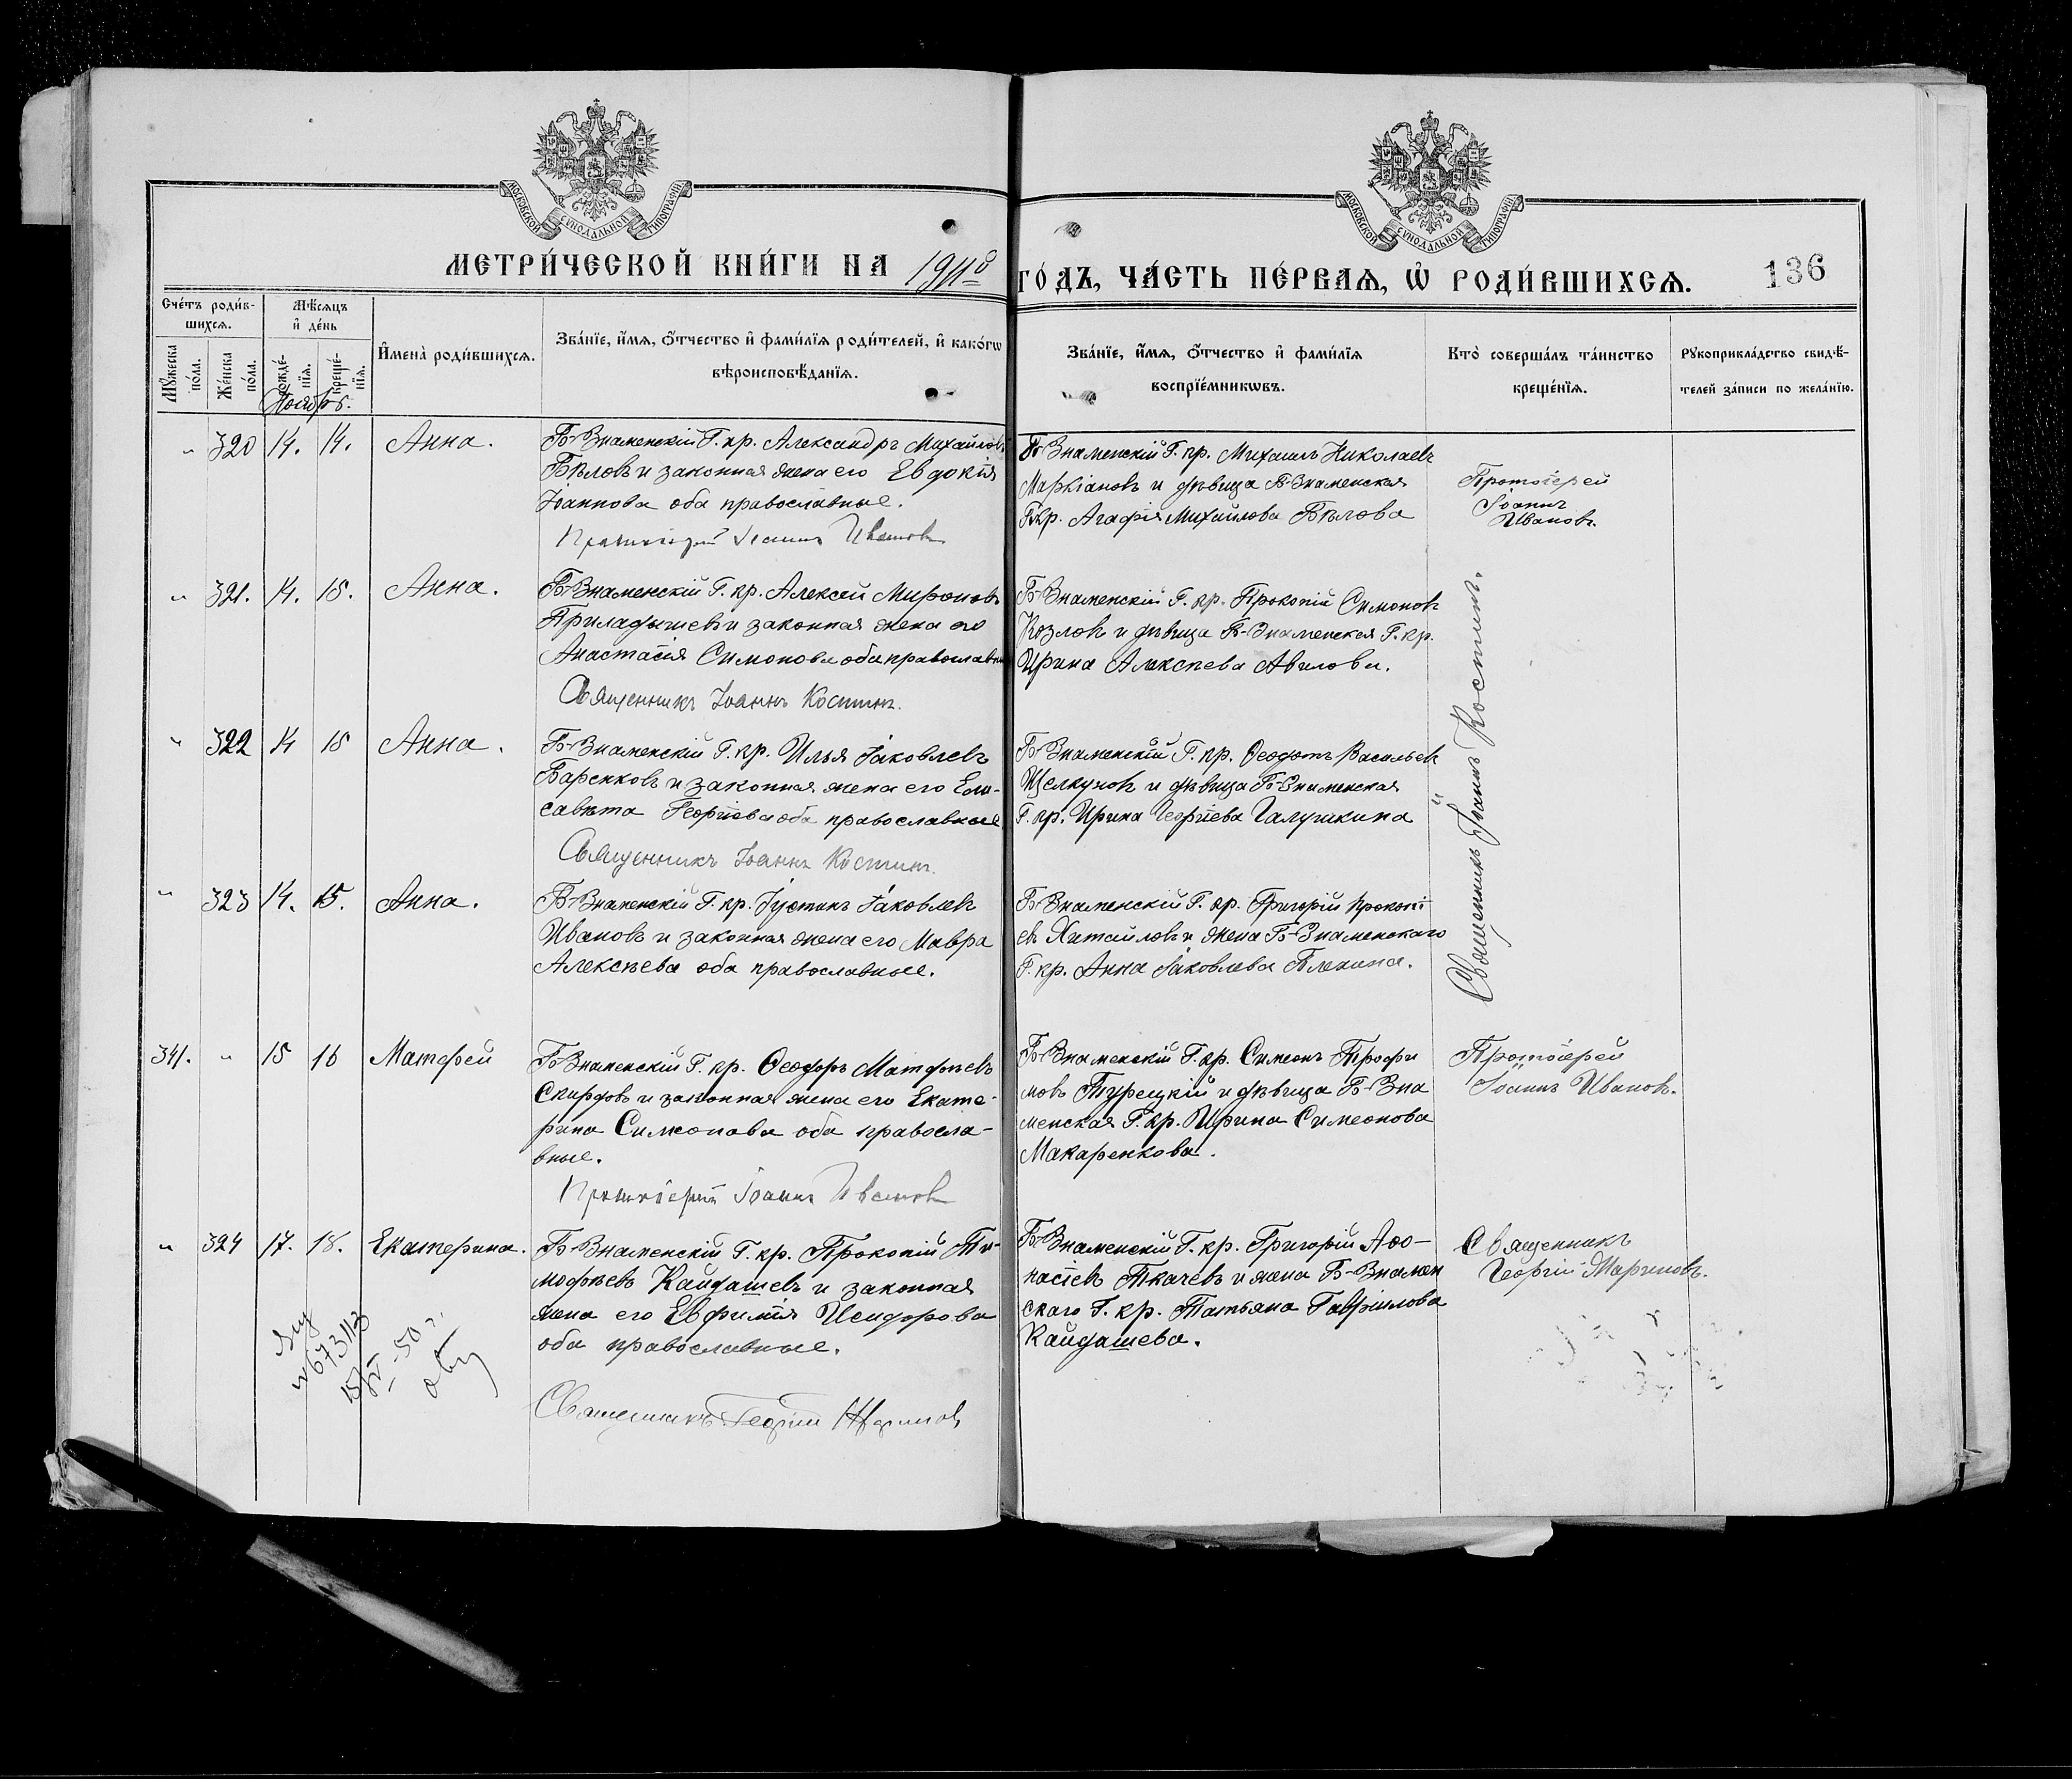 МОСКОВСКОЙ СѴНОДАЛЬНОЙ ТИПОГРАФІИ
МОСКОВСКОЙ СѴНОДАЛЬНОЙ ТИПОГРАФІИ
МЕТРИ́ЧЕСКОЙ КНИ́ГИ НА 1911й ГО́ДЪ, ЧА́СТЬ ПЕ́РВАѦ, Ѡ҆ РОДИ́ВШИХСѦ. 136
Сче́тъ роди́в-
шихсѧ.
Мѣ́сѧцъ
и҆ де́нь
Мꙋ́жеска
по́ла.
Же́нска
по́ла.
Рожде́-
нїѧ.
Креще́-
нїѧ.
И҆мена̀ роди́вшихсѧ.
Зва́нїе, и҆́мѧ, ѻ҆́тчество и҆ фами́лїѧ роди́телей, и҆ како́гѡ
вѣроисповѣ́данїѧ.
Зва́нїе, и҆́мѧ, ѻ҆́тчество и҆ фами́лїѧ
воспрїе́мникѡвъ.
Кто̀ соверша́лъ та́инство
креще́нїѧ.
Рꙋкоприкла́дство свидѣ́-
телей за́писи по жела́нїю.
Ноябрь.
" 320 14. 14. Анна.
Б-Знаменскій Г. кр. Александръ Михайловъ
Бѣловъ и законная жена его Евдокія
Іоаннова оба православные.
Протоіерей Іоаннъ Ивановъ
Б-Знаменскій Г. кр. Михаилъ Николаевъ
Маркіановъ и дѣвица Б-Знаменская
Г. кр. Агафія Михайлова Бѣлова
Протоіерей
Іоаннъ
Ивановъ.
" 321. 14. 15. Анна.
Б-Знаменскій Г. кр. Алексей Мироновъ
Приладышевъ и законная жена его
Анастасія Симонова оба православн
Священникъ Іоаннъ Костинъ.
Б-Знаменскій Г. кр. Прокопій Симоновъ
Козловъ и дѣвица Б-Знаменская Г. кр.
Ирина Алексѣева Авилова.
Священникъ Іоаннъ Костинъ.
" 322 14 15 Анна.
Б-Знаменскій Г. кр. Илья Іаковлевъ
Баренковъ и законная жена его Ели-
савѣта Георгіева оба православные
Священникъ Іоаннъ Костинъ.
Б-Знаменскій Г. кр. Ѳеодотъ Васильевъ
Щелкуновъ и дѣвица Б-Знаменская
Г. кр. Ирина Георгіева Галушкина
" 323 14. 15. Анна.
Б-Знаменскій Г. кр. Іустинъ Іаковлевъ
Ивановъ и законная жена его Мавра
Алексѣева оба православные.
Б-Знаменскій Г. кр. Григорій Прокопі
евъ Хитайловъ и жена Б-Знаменскаго
Г. кр. Анна Іаковлева Плекина.
341. " 15 16 Матфей
Б-Знаменскій Г. кр. Ѳеодоръ Матфѣевъ
Скирдовъ и законная жена его Екате-
рина Симеонова оба правосла-
вные.
Протоіерей Іоаннъ Ивановъ
Б-Знаменскій Г. кр. Симеонъ Трофи
мовъ Турецкій и дѣвица Б-Зна
менская Г. кр. Ирина Симеонова
Макаренкова.
Протоіерей
Іоаннъ Ивановъ.
" 324 17. 18. Екатерина.
Б-Знаменскій Г. кр. Прокопій Ти-
мофѣевъ Кайдашевъ и законная
жена его Евфимія Исидорова
оба православные.
Священникъ Георгій Мариновъ
Б-Знаменскій Г. кр. Григорій Аѳо-
насіевъ Ткачевъ и жена Б-Знамен
скаго Г. кр. Татьяна Гавріилова
Кайдашева.
Священникъ
Георгій Мариновъ.